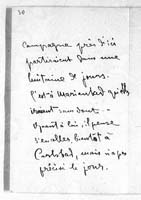 30
Campagne près d'ici
partiraient dans une
huitaine de jours.
C'est à Marienbad qu'ils
iraient sans doute —
Quant à lui, il pense
s'en aller bientôt à
Carlsbad, mais n'a pas
précisé le jour.